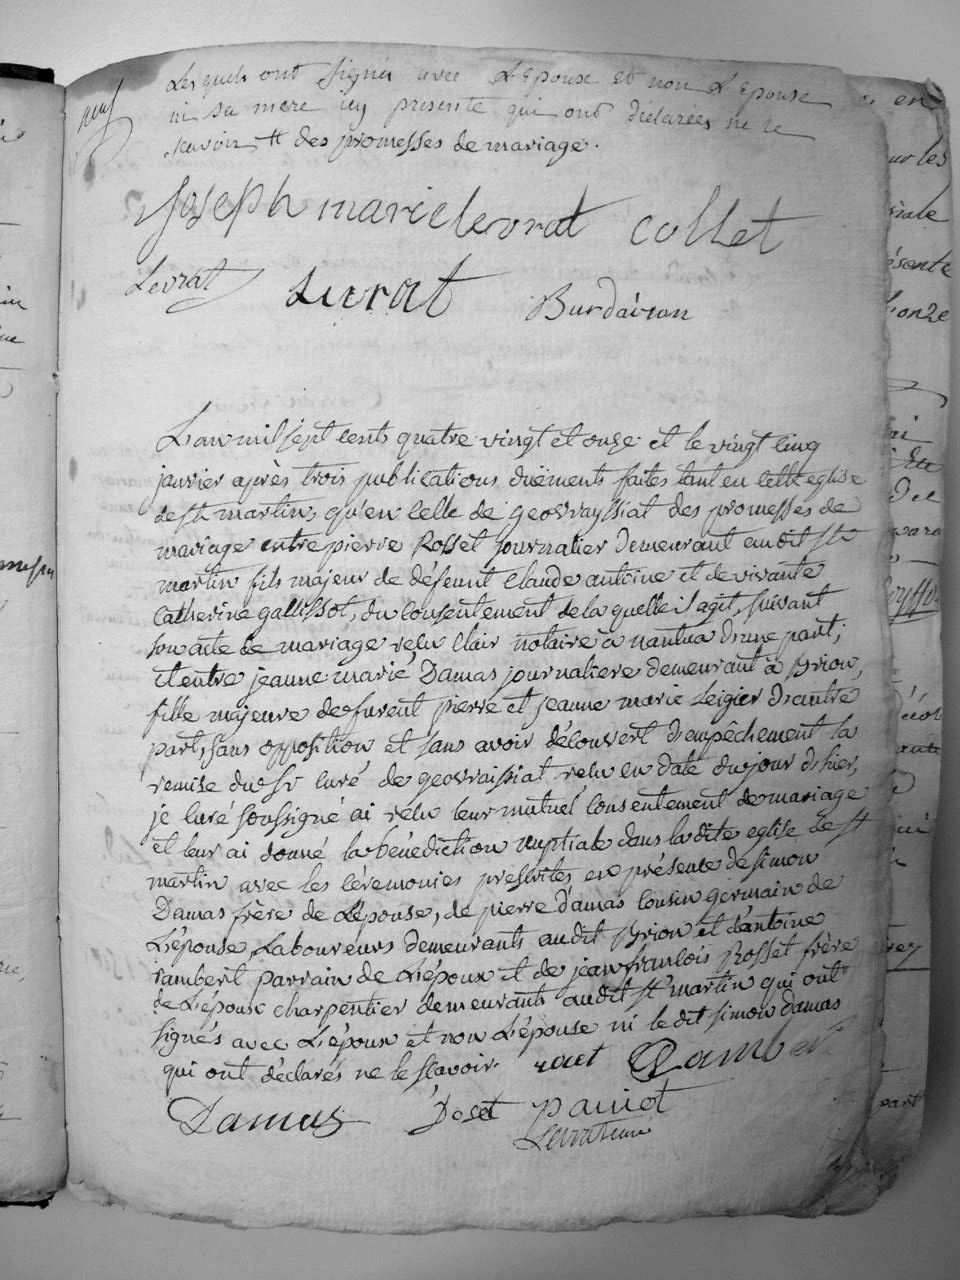 neuf
Lesquels ont signés avec L'Epoux et non L'Epouse
ni sa mere icy presente qui ont déclarées ne le
scavoir # des promesses de mariage.
Joseph marie levrat collet
Levrat Levrat Burdávron
L'an mil sept cents quatre vingt et onze et le vingt cinq
janvier après trois publications duëments faites tant en cette eglise
de st martin, qu'en celle de geovrayssiat des promesses de
mariage entre pierre Rosset journalier demeurant audit st
martin fils majeur de défeunt Claude antoine et de vivante
Catherine gallissot, du consentement de la quelle il agit, suivant
son acte de mariage reçu Clair notaire à nantua d'une part;
et entre jeanne marie Damas journaliere demeurant à Brion,
fille majeure de furent pierre et jeanne marie Leigier d'autre
part, sans opposition et sans avoir découvert d'empêchement la
remise du sr curé de geovraissiat reçu en date du jour d'hier,
je curé soussigné ai reçu leur mutuel consentement de mariage
et leur ai donné la bénédiction nuptiale dans la dite eglise de st
martin avec les céremonies prescrites en présence de simon
Damas frère de L'épouse, de pierre damas cousin germain de
L'épouse, Laboureurs demeurants audit Brion et d'antoine
rambert parrain de L'époux et de jean françois Rosset frère
de L'époux charpentier demeurants audit st martin qui ont
signés avec L'époux et non L'épouse ni le dit simon damas
qui ont déclarés ne le sçavoir. Rambert
Damas